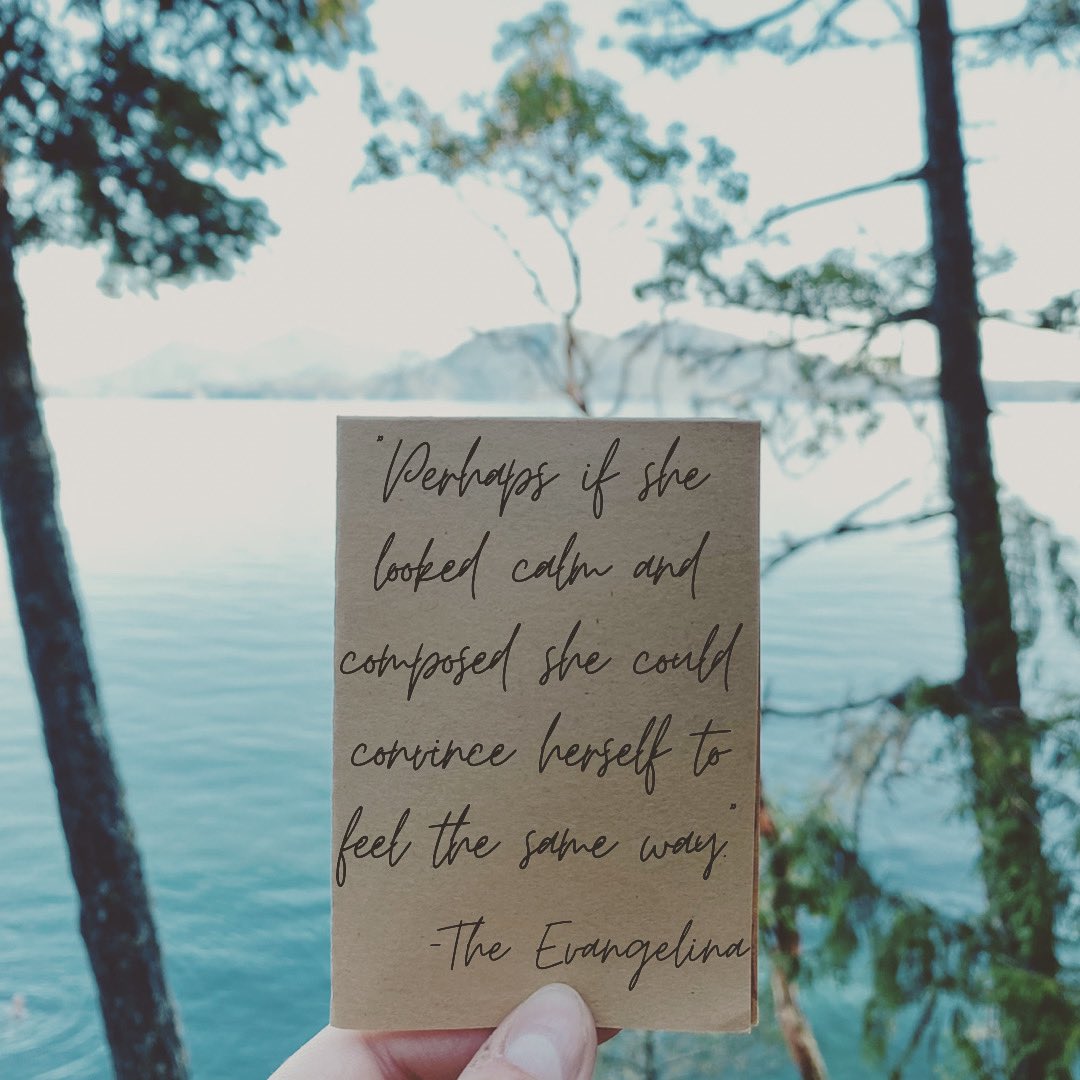 "Perhaps if she
looked calm and
composed she could
convince herself to
feel the same way."
-The Evangelina